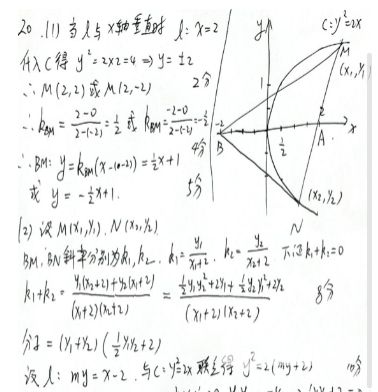 20. (1) 当l与x轴垂直时 l: x=2
代入C得 y²=2×2=4 ⇒ y=±2
∴ M(2,2)或M(2,-2) 2分
∴ k_BM = (2-0)/(2-(-2)) = 1/2 或 k_BM = (-2-0)/(2-(-2)) = -1/2
4分
∴ BM: y=k_BM(x-(-2))=1/2x+1
或 y=-1/2x+1. 5分
y
C: y²=2x
M
(x₁, y₁)
1
-2
B
1/2
2
A
x
(x₂, y₂)
N
(2) 设M(x₁,y₁). N(x₂,y₂)
BM, BN斜率分别为k₁, k₂. k₁=y₁/(x₁+2). k₂=y₂/(x₂+2) 下证k₁+k₂=0
k₁+k₂ = (y₁(x₂+2)+y₂(x₁+2))/((x₁+2)(x₂+2)) = (1/2y₁y₂²+2y₁+1/2y₂y₁²+2y₂)/((x₁+2)(x₂+2)) 8分
分子=(y₁+y₂)(1/2y₁y₂+2)
设l: my=x-2. 与C: y²=2x联立得 y²=2(my+2) 10分